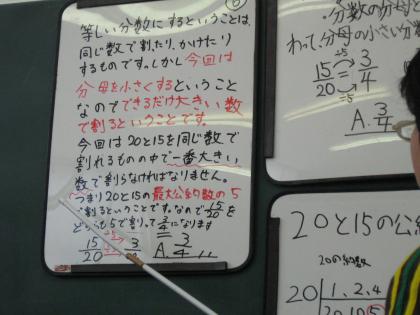 等しい分数にするということは、
同じ数で割たり、かけたり
するものです。しかし今回は
分母を小さくするということ
なのでできるだけ大きい数
で割るということです。
今回は20と15を同じ数で
割れるものの中で一番大きい
数で割らなければなりません。
つまり20と15の最大公約数の5
で割るということです。なので15/20を
どちらも5で割って3/4になります
15/20 ÷5 ÷5 = 3/4 A. 3/4
分数の分母と
わって、分母の小さい分
15/20 ÷5 ÷5 = 3/4
A. 3/4
20と15の公
20の約数
20 1, 2, 4
20, 10, 5